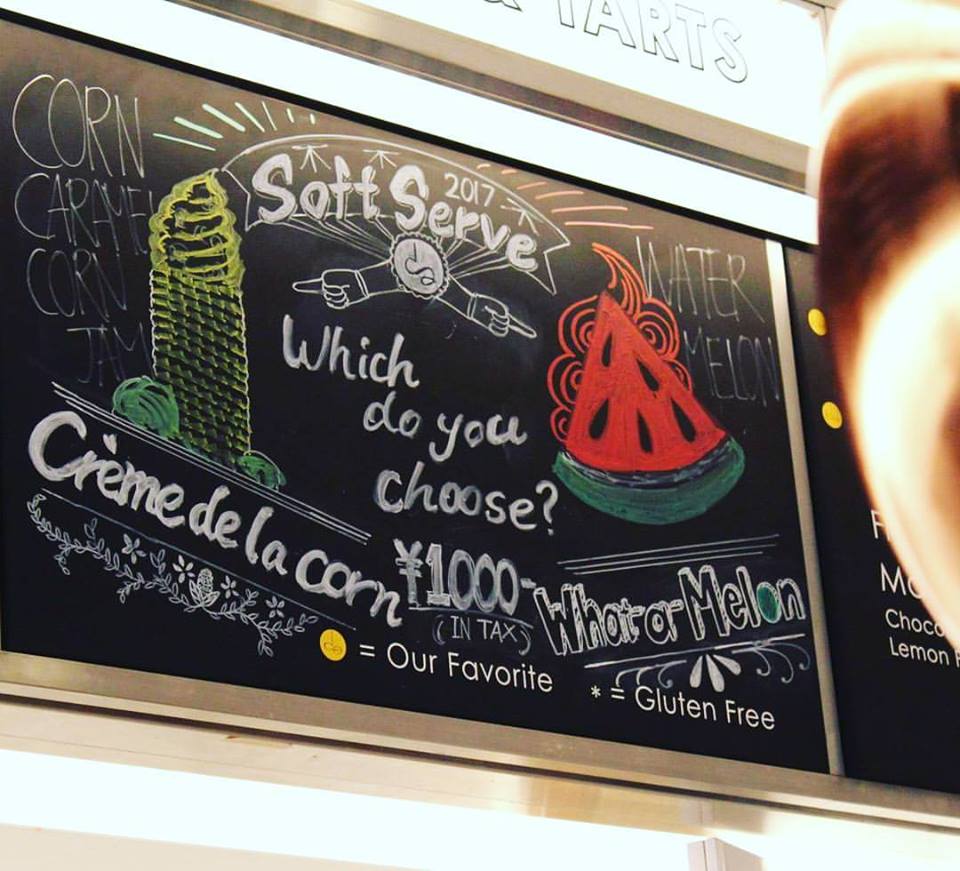 TARTS
CORN
CARAMEL
CORN
JAM
Soft Serve
2017
WATER
MELON
Which
do you
choose?
Crème de la corn
¥1000-
(IN TAX)
What-a-Melon
= Our Favorite
* = Gluten Free
Choco
Lemon